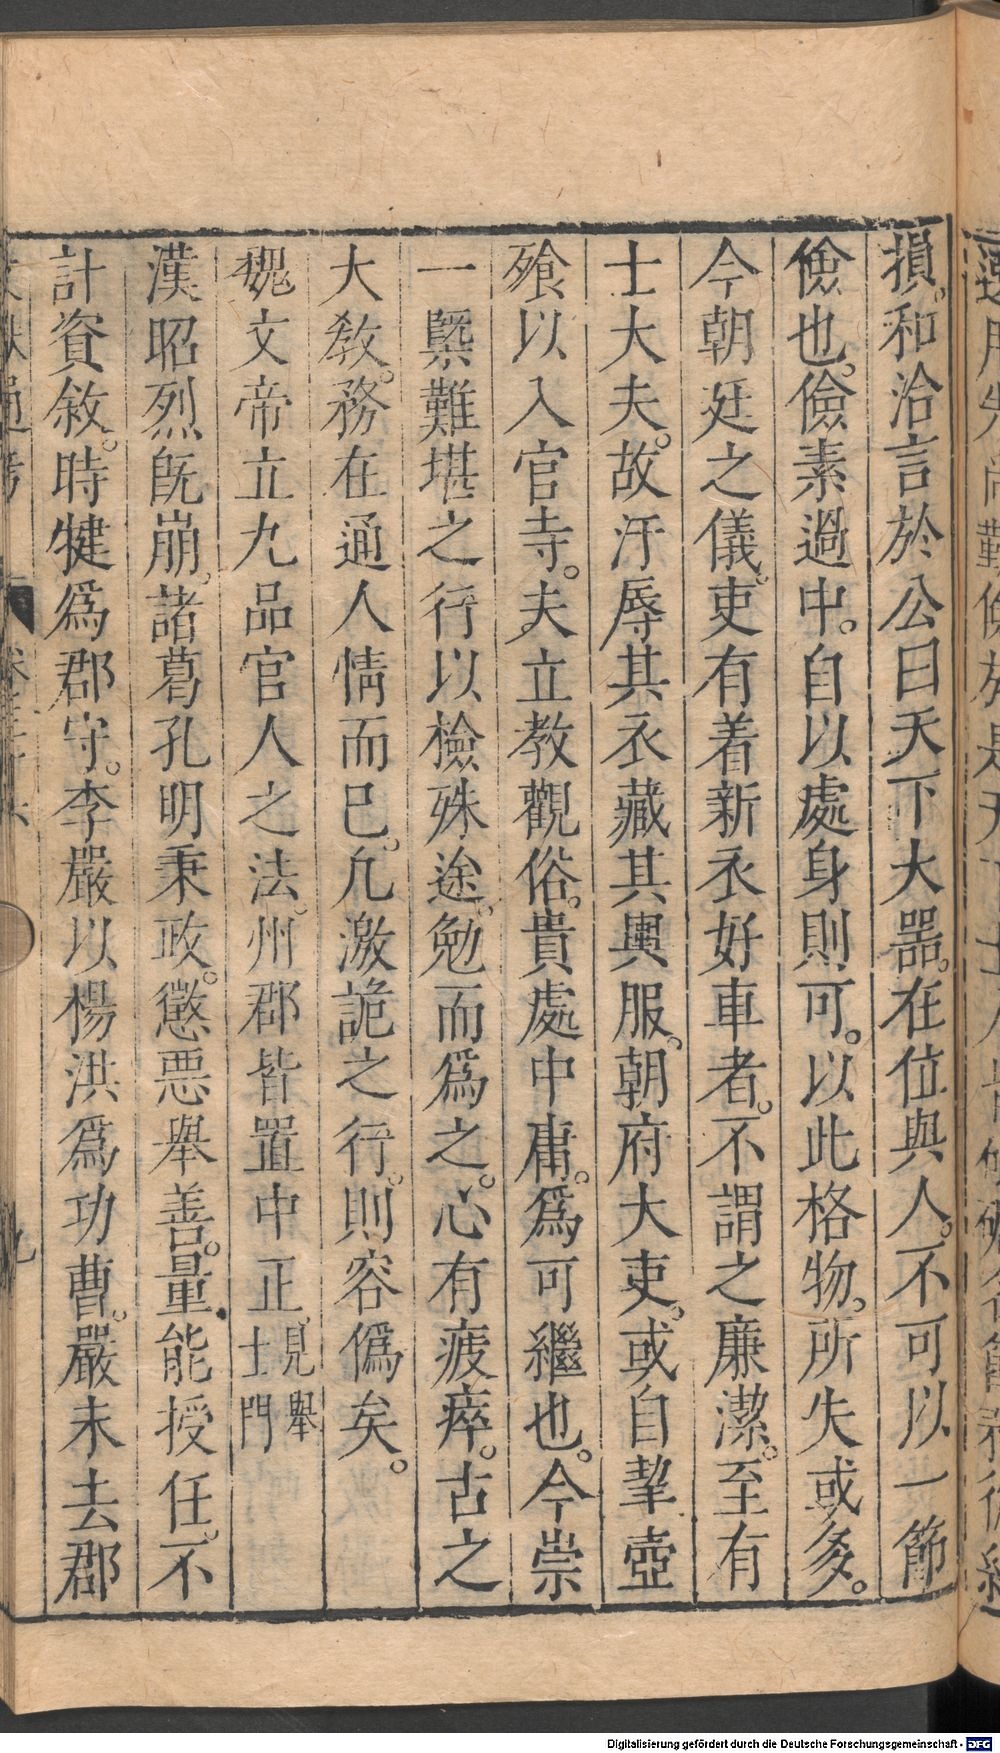 損。和洽言於公曰天下大器。在位與人。不可以一節
儉也。儉素過中。自以處身則可。以此格物。所失或多。
今朝廷之儀。吏有着新衣好車者。不謂之廉潔。至有
士大夫。故汙辱其衣藏其輿服。朝府大吏。或自挈壺
飱以入官寺。夫立教觀俗。貴處中庸。爲可繼也。今崇
一槩難堪之行以檢殊途。勉而爲之。心有疲瘁。古之
大教。務在通人情而巳。凢激詭之行。則容僞矣。
魏文帝立九品官人之法。州郡皆置中正。見舉
士門
漢昭烈旣崩。諸葛孔明秉政。懲惡舉善。量能授任。不
計資敘。時犍爲郡守。李嚴以楊洪爲功曹。嚴未去郡
通考
Digitalisierung gefördert durch die Deutsche Forschungsgemeinschaft - DFG